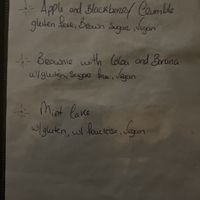 Apple and Blackberry Crumble
gluten free, Brown Sugar, Vegan
Brownie with Cocoa and Banana
w/gluten, Sugar free, Vegan
Mint Cake
w/gluten, w/ Vegan